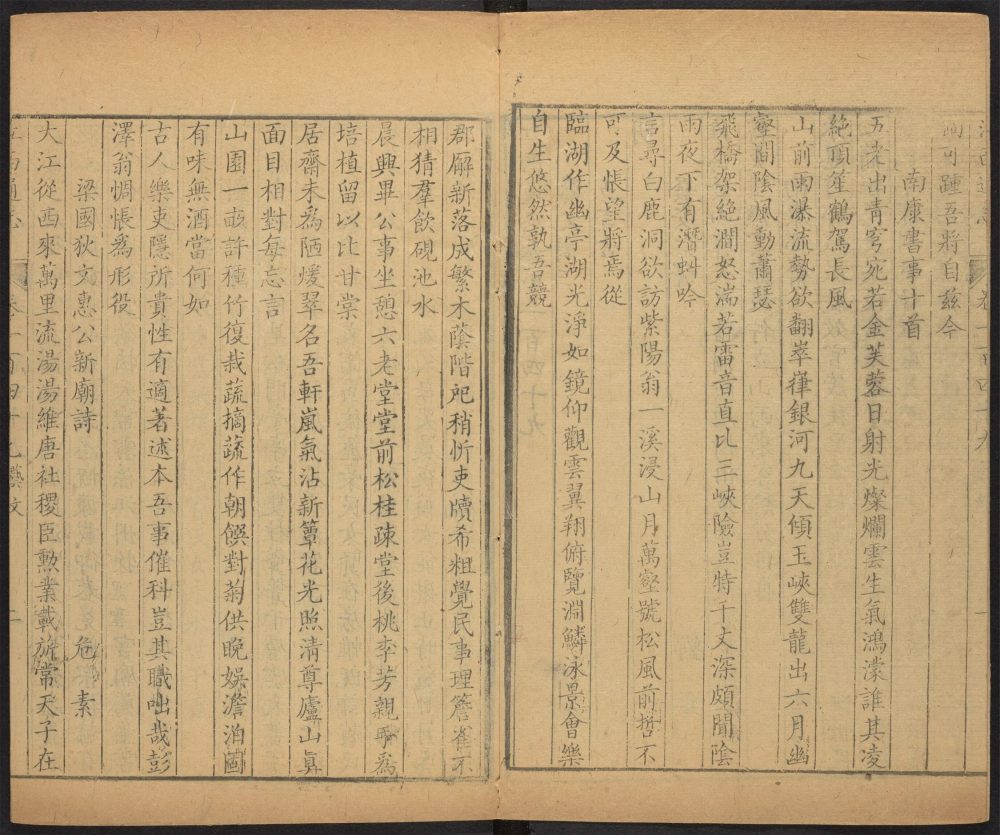 江西通志 卷一百四十九
可踵吾將自茲今
南康書事十首
五老出青穹宛若金芙蓉日射光燦爛雲生氣鴻濛誰其凌
絶頂笙鶴駕長風
山前雨瀑流勢欲翻崒嵂銀河九天傾玉峽雙龍出六月幽
壑間陰風動蕭瑟
飛橋架絶澗怒湍若雷音直比三峽險豈特千丈深頗聞陰
雨夜下有潛蚪吟
言尋白鹿洞欲訪紫陽翁一溪浸山月萬壑號松風前哲不
可及悵望將焉從
臨湖作幽亭湖光淨如鏡仰觀雲翼翔俯覽淵鱗泳景會樂
自生悠然孰吾競
郡廨新落成繁木蔭階戺稍忻吏牘希粗覺民事理簷雀不
相猜羣飲硯池水
晨興畢公事坐憩六老堂堂前松桂疎堂後桃李芳親爲
培植留以比甘棠
居齋未爲陋煖翠名吾軒嵐氣沾新簟花光照清尊廬山眞
面目相對每忘言
山園一畝許種竹復栽蔬摘蔬作朝饌對菊供晩娛澹泊固
有味無酒當何如
古人樂吏隱所貴性有適著述本吾事催科豈其職咄哉彭
澤翁惆悵爲形役
梁國狄文惠公新廟詩 危素
大江從西來萬里流湯湯維唐社稷臣勳業載旂常天子在
江西通志 卷一百四十九 藝文 二